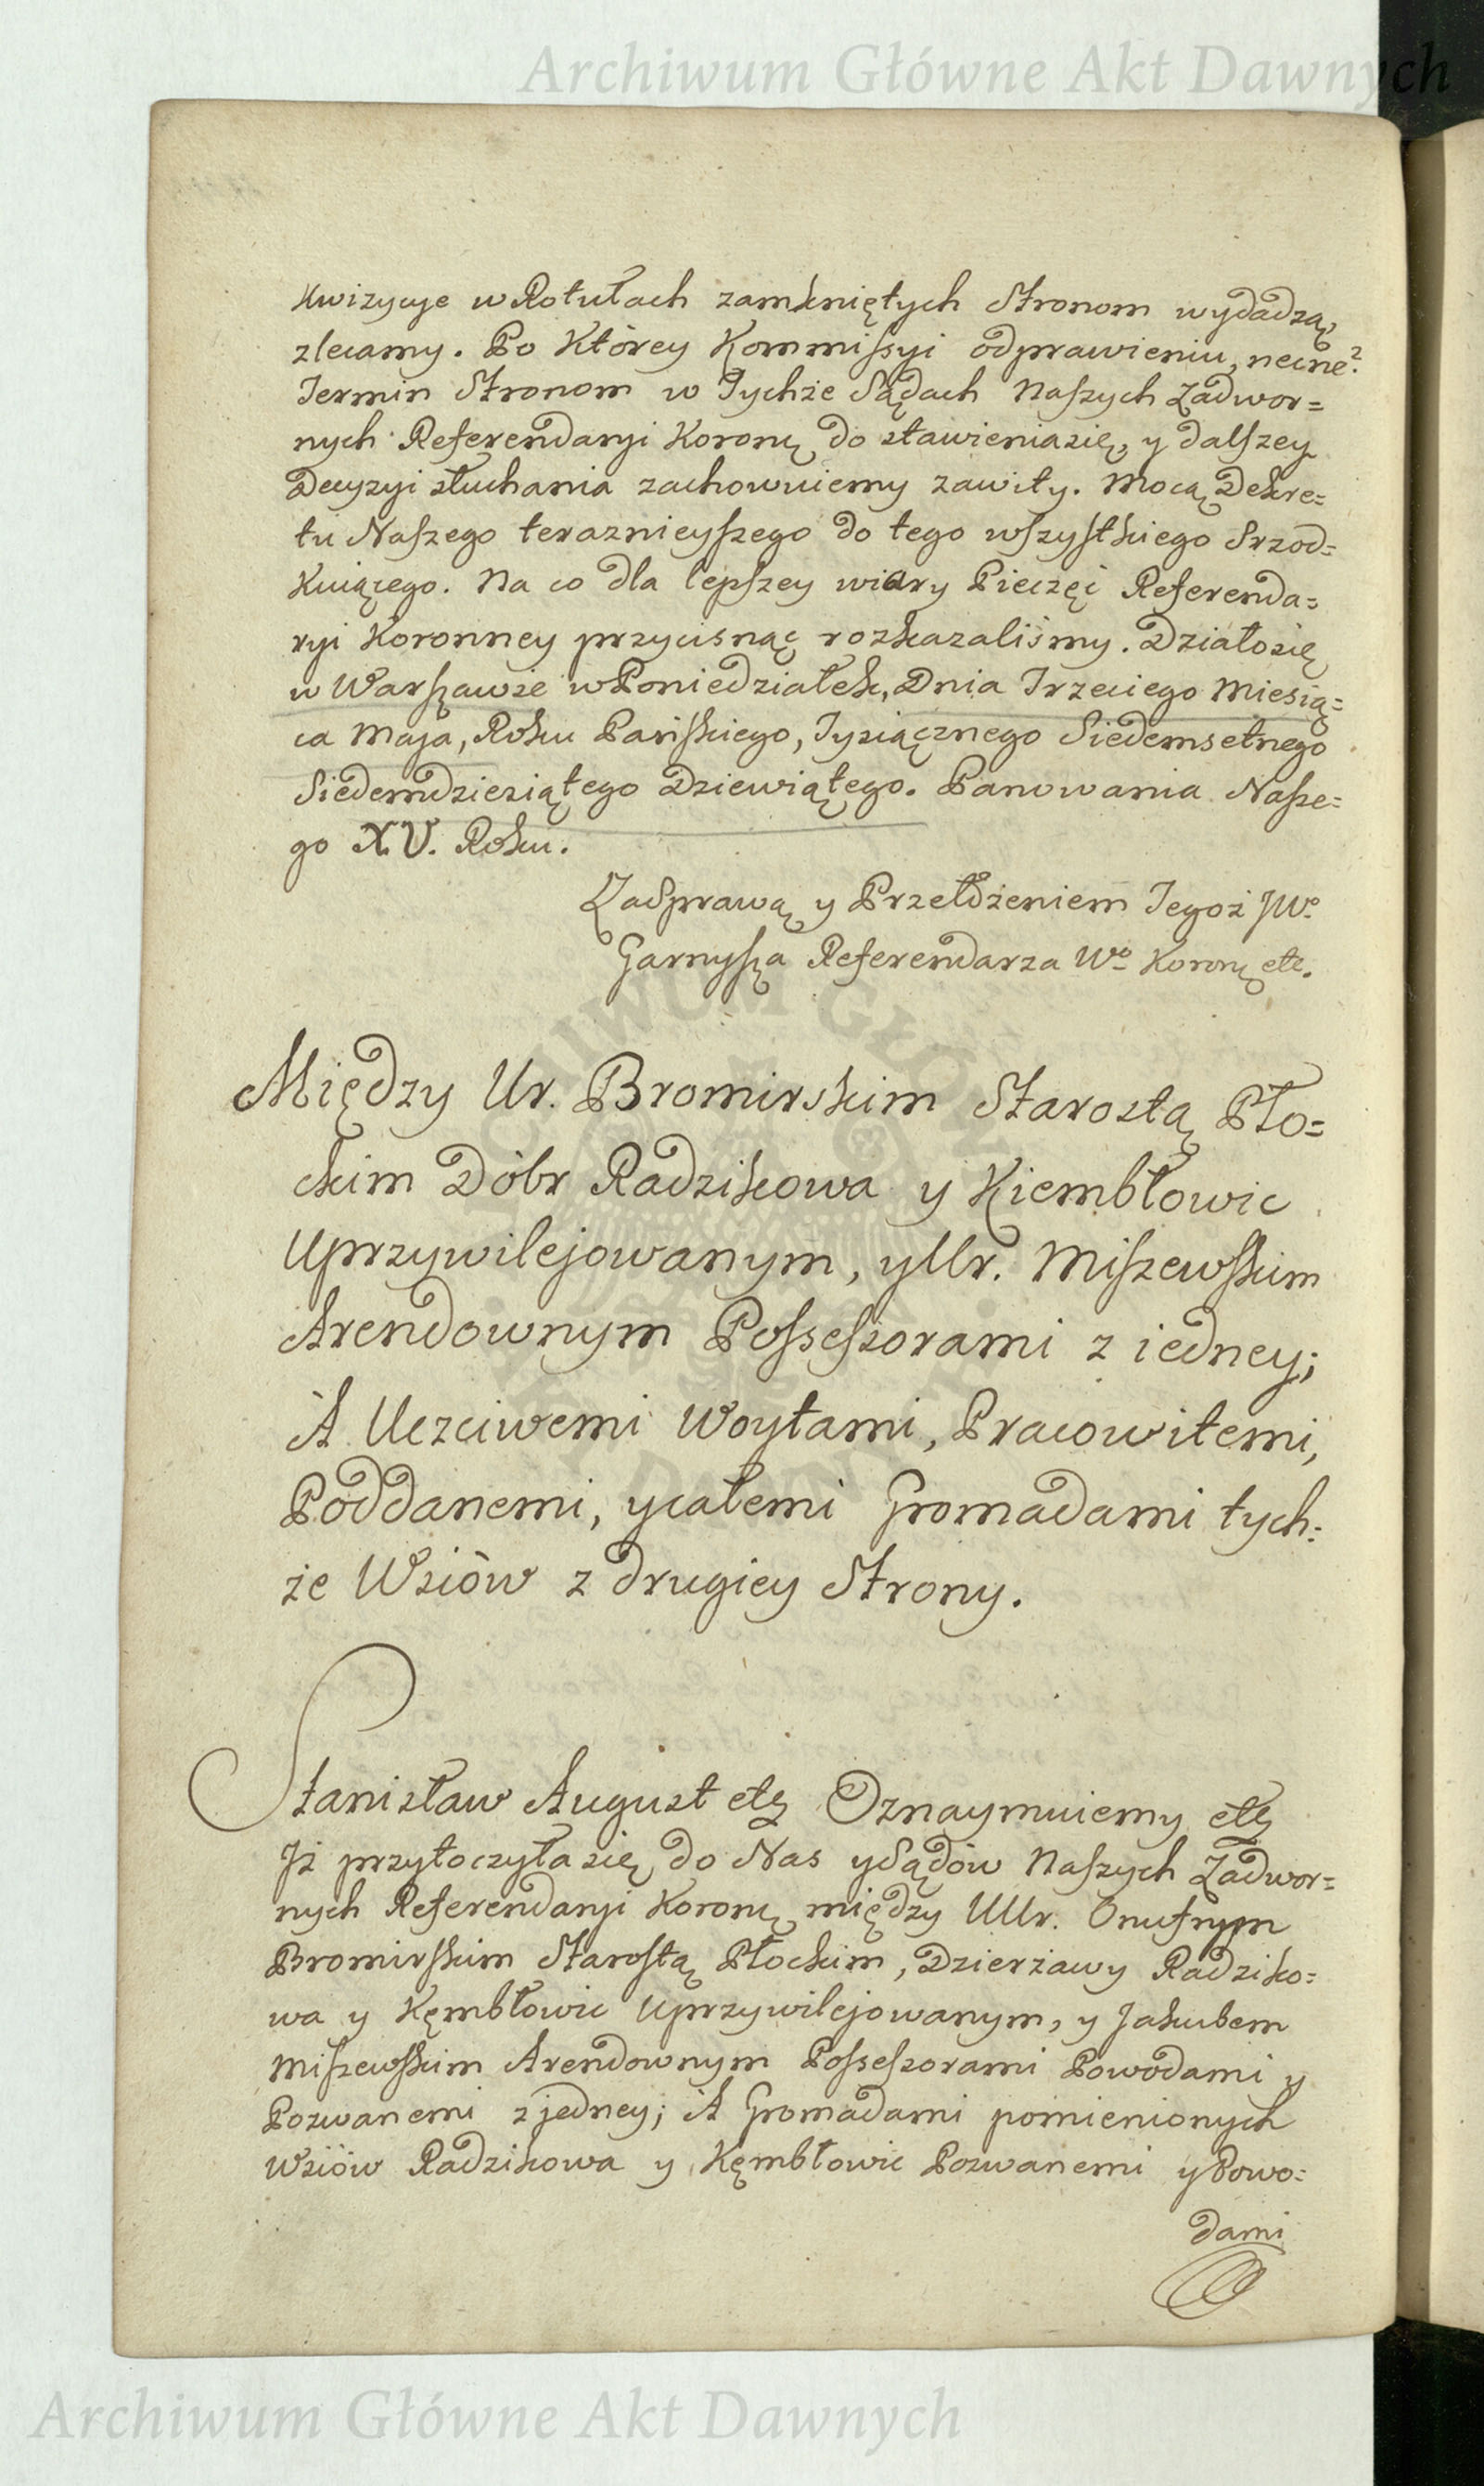 Archiwum Główne Akt Dawnych
kwizycye w Rotułach zamkniętych Stronom wydadzą,
zlecamy. Po Którey Kommissyi odprawieniu,
Termin Stronom w Tychże Sądach Naszych Zadwor=
nych Referendaryi Koronę do stawieniasię, y dalszey
Decyzyi słuchania zachowuiemy zawity. Mocą Dekre=
tu Naszego teraznieyszego do tego wszystkiego Srzod=
kuiącego. Na co dla lepszey wiary Pieczęć Referenda=
ryi Koronney przycisnąć rozkazaliśmy. Działosię
w Warszawie w Poniedziałek, Dnia Trzeciego Miesią=
ca Maja, Roku Pańskiego, Tysiącznego Siedemsetnego
Siedemdziesiątego Dziewiątego. Panowania Nasze=
go XV. Roku.
Zasprawą y Przełożeniem Tegoż JWo
Garnysza Referendarza Wo Koronę etc.
Między Ur. Bromirskim Starostą Pło=
ckim Dóbr Radzikowa y Kiembłowic
Uprzywilejowanym, y Ur. Miszewskim
Arendownym Possessorami z iedney;
A Uczciwemi Woytami, Pracowitemi,
Poddanemi, y całemi Gromadami tych=
że Wsiów z drugiey Strony.
Stanisław August etę Oznaymuiemy etę
Iż przytoczyłasię do Nas y Sądów Naszych Zadwor=
nych Referendaryi Koronę między UUr. Onufrym
Bromirskim Starostą Płockim, Dzierżawy Radziko=
wa y Kęmbłowic Uprzywilejowanym, y Jakubem
Miszewskim Arendownym Possessorami Powodami y
Pozwanemi z jedney; A Gromadami pomienionych
Wsiów Radzikowa y Kęmbłowic Pozwanemi y Powo=
dami
Archiwum Główne Akt Dawnych